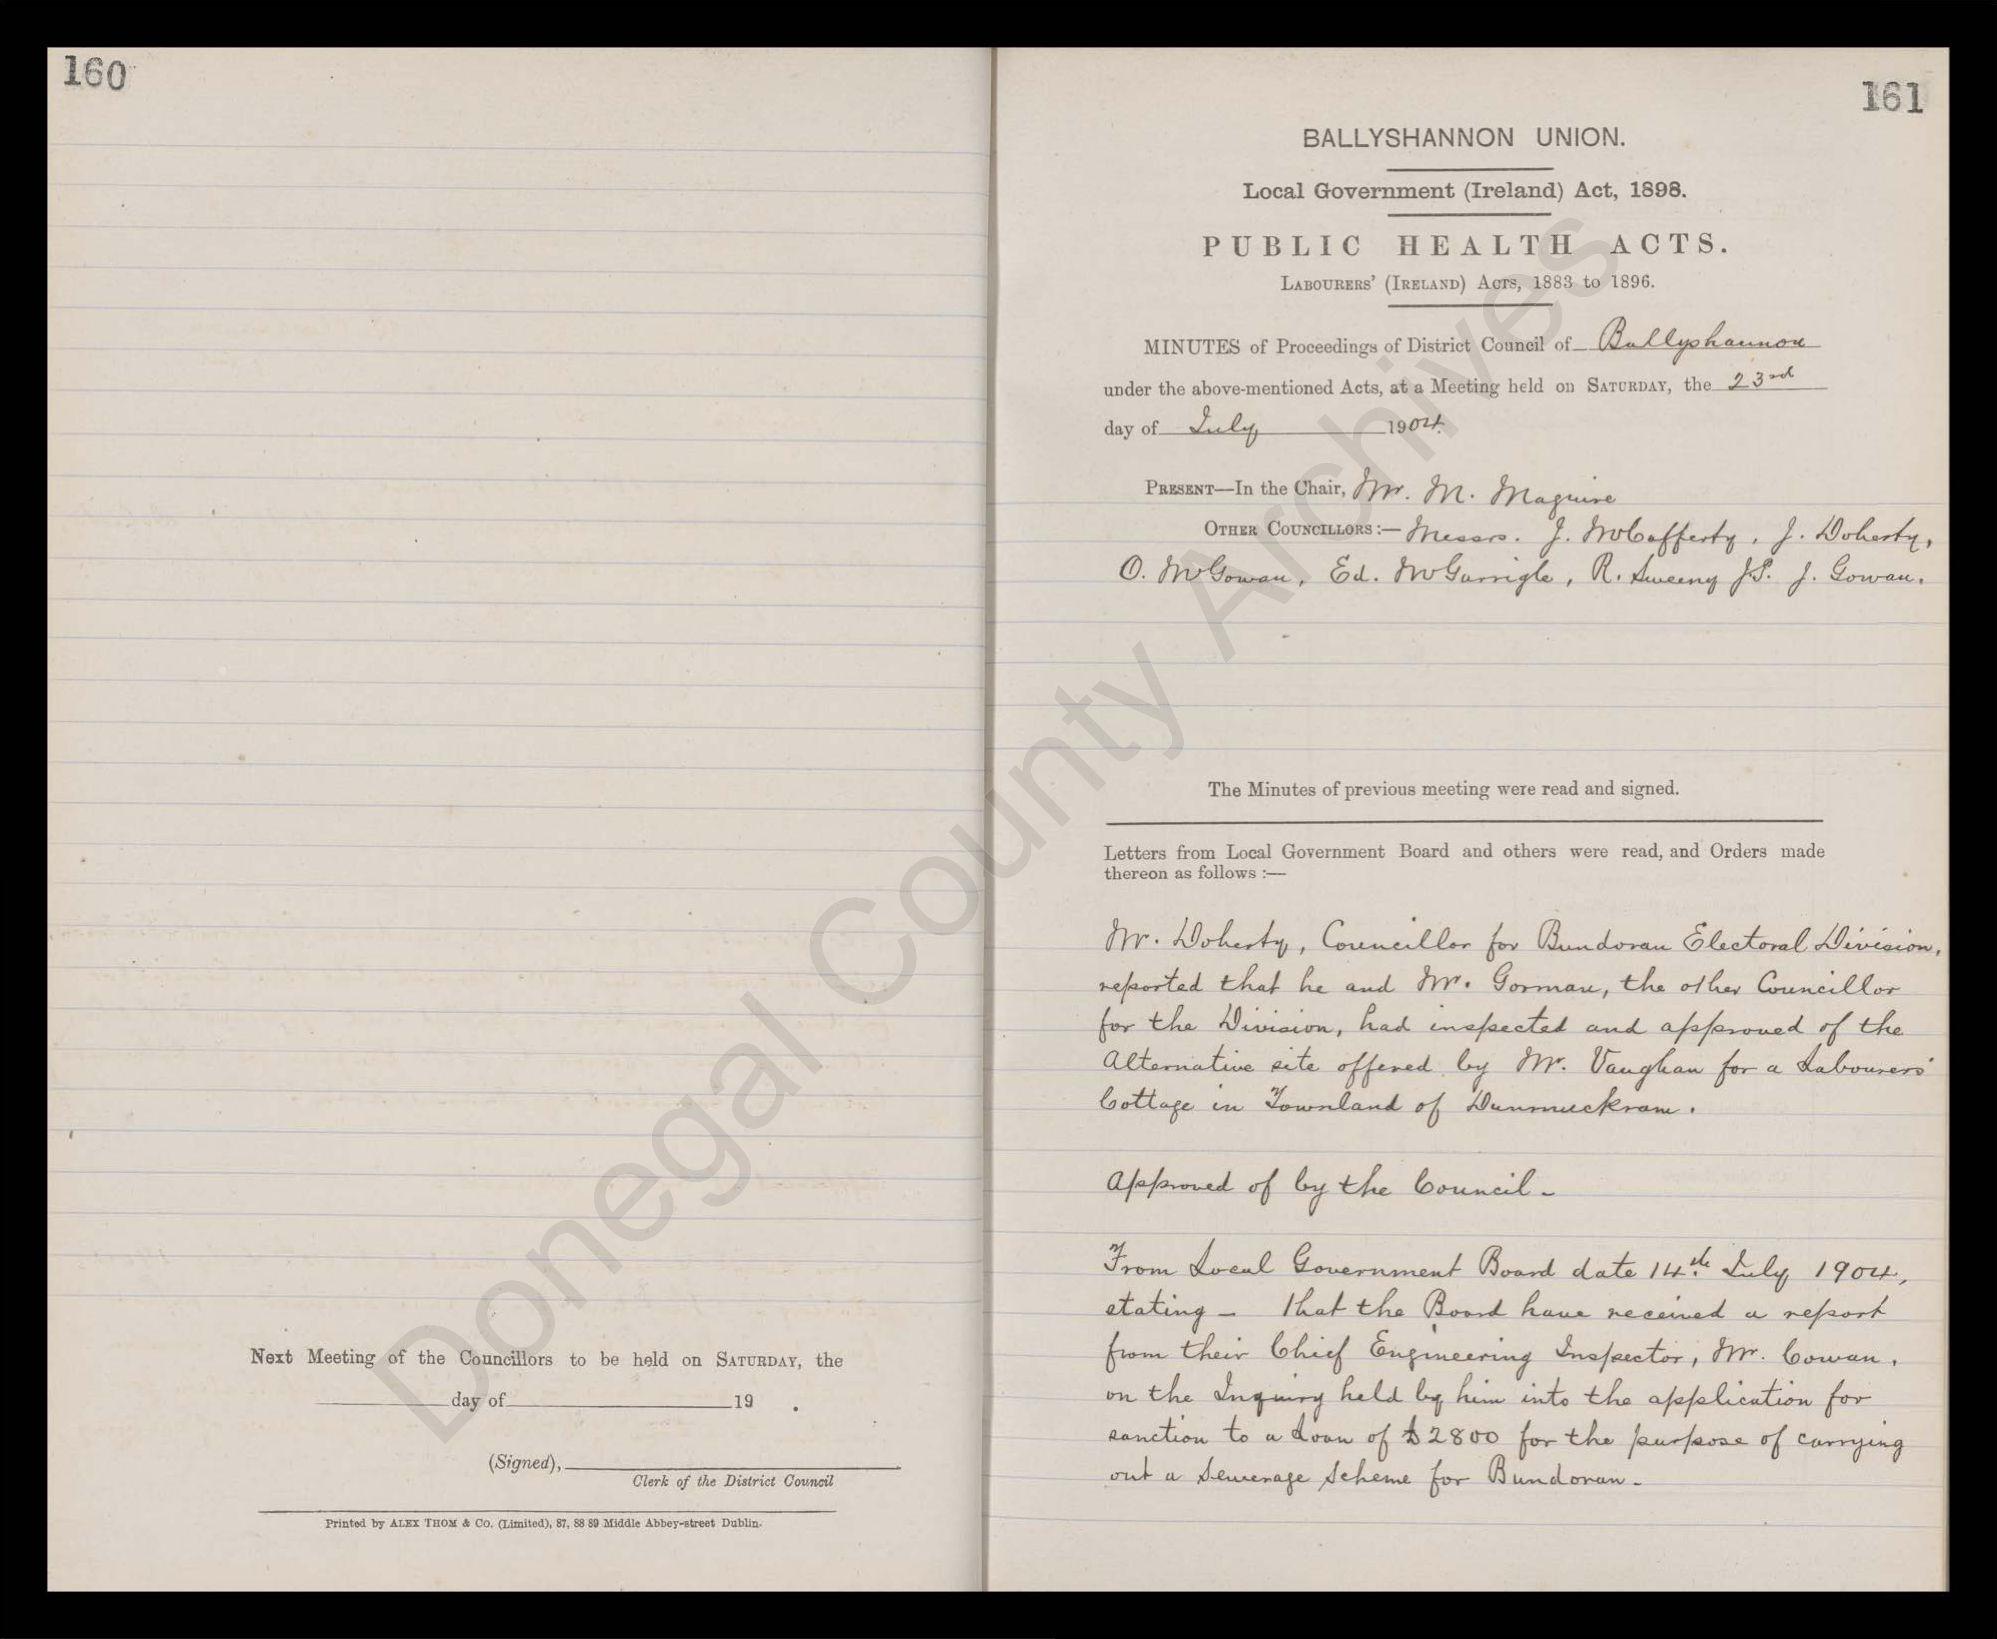 160
Next Meeting of the Councillors to be held on SATURDAY, the
day of 19 .
(Signed),
Clerk of the District Council
Printed by ALEX THOM & Co. (Limited), 87, 88 89 Middle Abbey-street Dublin.
161
BALLYSHANNON UNION.
Local Government (Ireland) Act, 1898.
PUBLIC HEALTH ACTS.
LABOURERS' (IRELAND) ACTS, 1883 to 1896.
MINUTES of Proceedings of District Council of Ballyshannon
under the above-mentioned Acts, at a Meeting held on SATURDAY, the 23rd
day of July 1904.
PRESENT—In the Chair, Mr. M. Maguire
OTHER COUNCILLORS:— Messrs. J. McCafferty, J. Doherty,
O. McGowan, Ed. McGarrigle, R. Sweeny J.P. J. Gowan.
The Minutes of previous meeting were read and signed.
Letters from Local Government Board and others were read, and Orders made
thereon as follows :—
Mr. Doherty, Councillor for Bundoran Electoral Division,
reported that he and Mr. Gorman, the other Councillor
for the Division, had inspected and approved of the
Alternative site offered by Mr. Vaughan for a Labourers'
Cottage in Townland of Dunmuckram.
Approved of by the Council -
From Local Government Board date 14th July 1904,
stating - That the Board have received a report
from their Chief Engineering Inspector, Mr. Cowan,
on the Inquiry held by him into the application for
sanction to a Loan of £2800 for the purpose of carrying
out a Sewerage Scheme for Bundoran -
Donegal County Archives